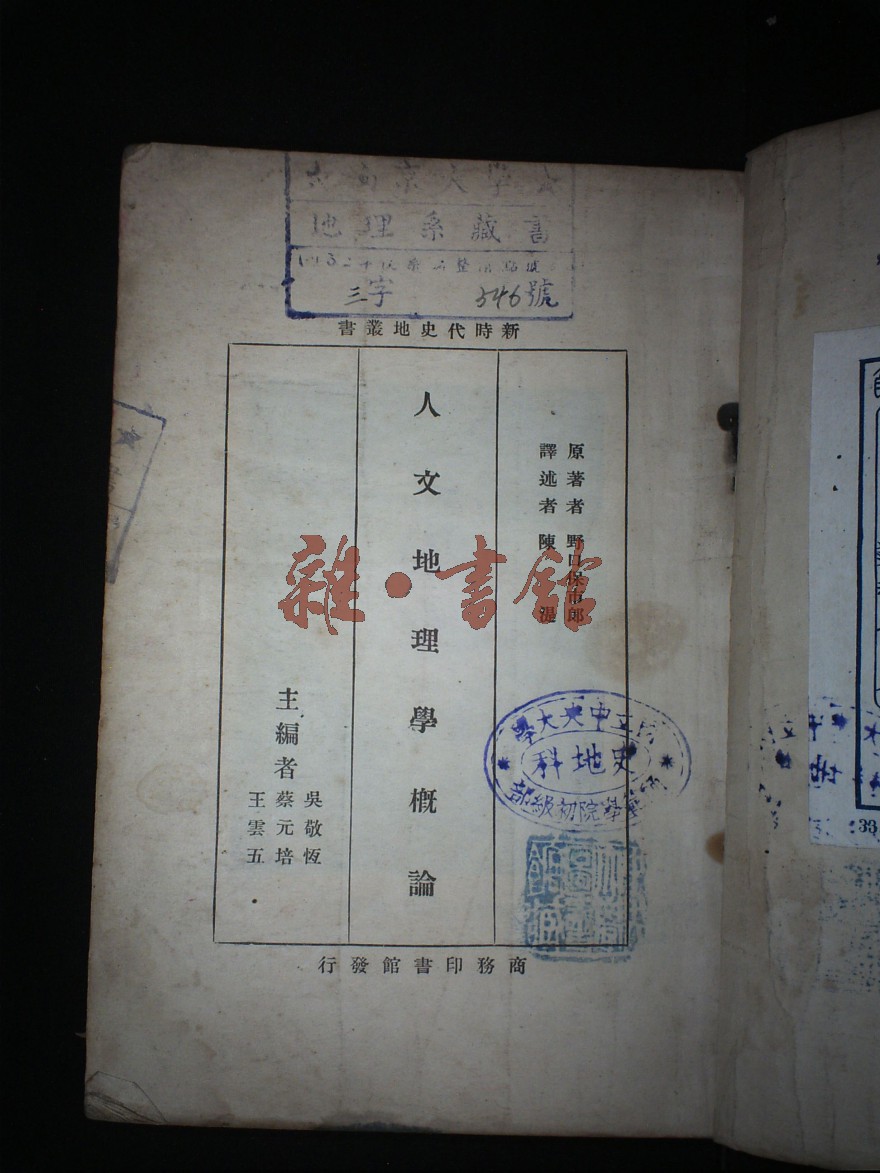 南京大學
地理系藏書
三字 346號
新時代史地叢書
原著者 野口保市郎
譯述者 陳湜
人文地理學概論
主編者
吳敬恆
蔡元培
王雲五
商務印書館發行
國立中央大學
實驗學院初級部
史地科
雜·書館
33